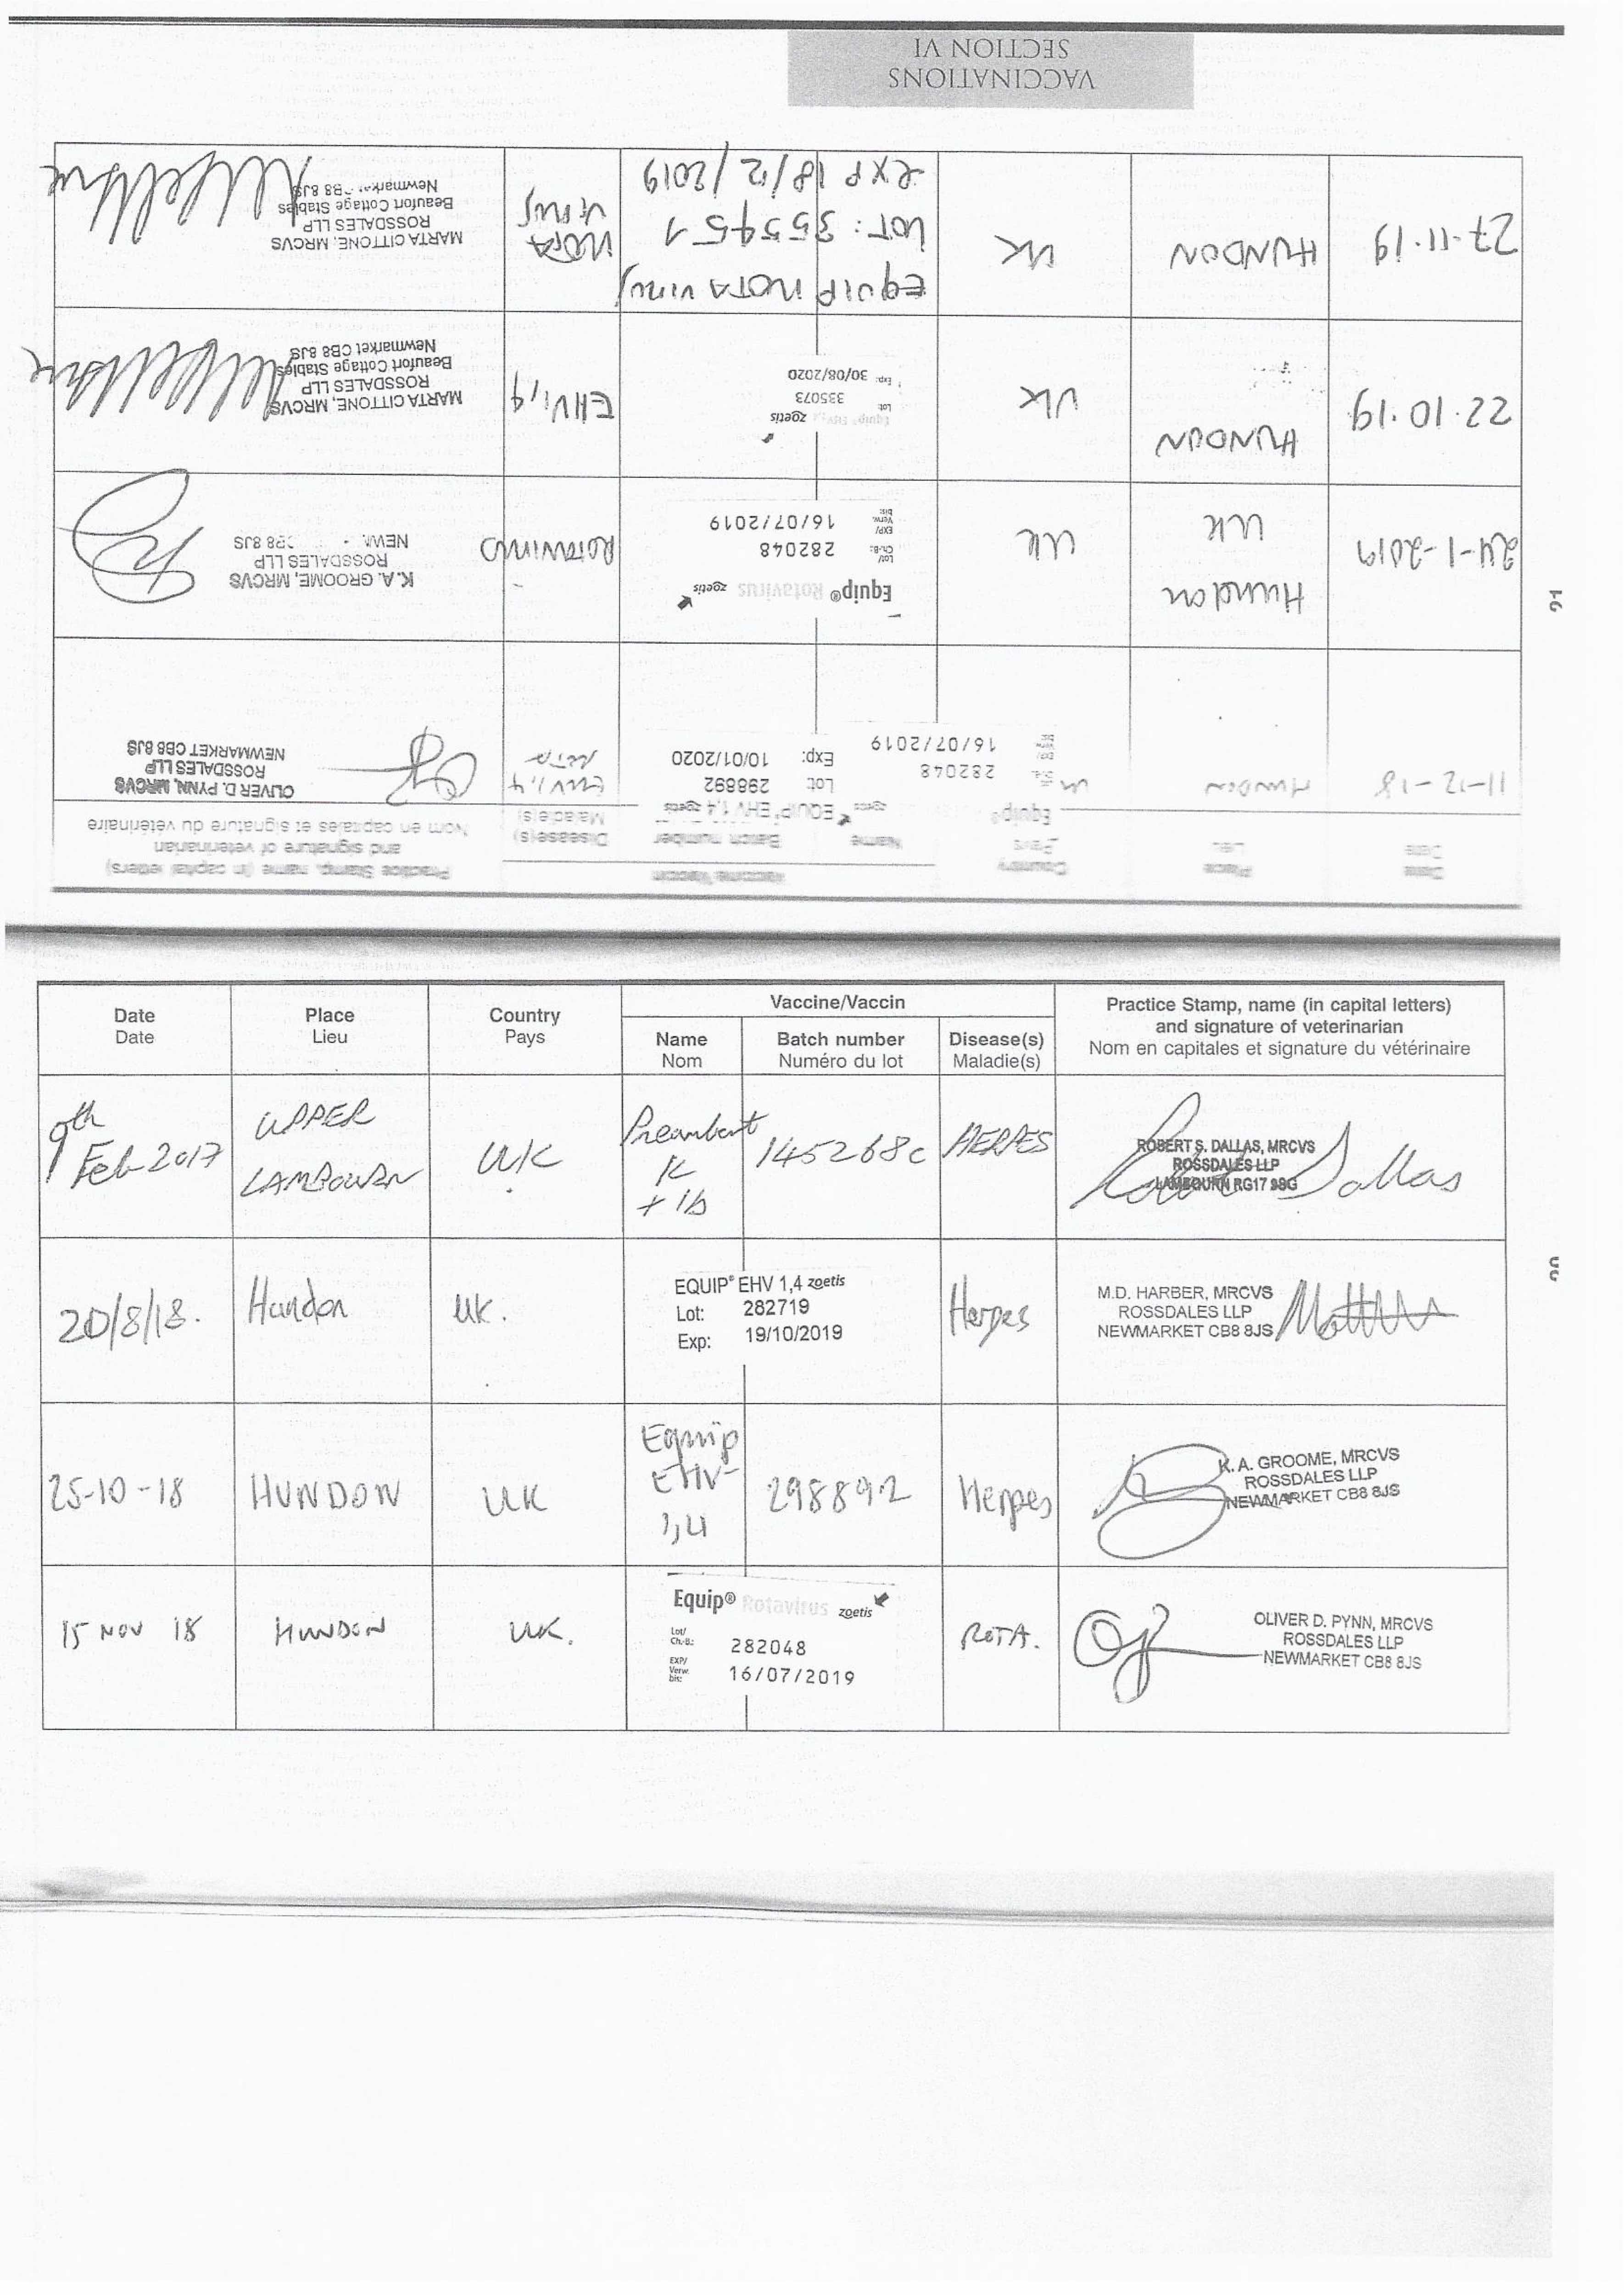 VACCINATIONS
SECTION VI
Date
Date
Place
Lieu
Country
Pays
Vaccine/Vaccin
Name
Batch number
Disease(s)
Maladie(s)
Practice Stamp, name (in capital letters)
and signature of veterinarian
Nom en capitales et signature du vétérinaire
11-12-18
HUNDON
UK
Equip®
282048
16/07/2019
zoetis
EQUIP® EHV 1,4 zoetis
Lot: 298892
Exp: 10/01/2020
EHV 1,4
ROTA
OLIVER D. PYNN, MRCVS
ROSSDALES LLP
NEWMARKET CB8 8JS
24-1-2019
Hundon
UK
UK
Equip® Rotavirus zoetis
Lot/
Ch.-B.: 282048
EXP/
Verw.
bis: 16/07/2019
ROTAVIRUS
K.A. GROOME, MRCVS
ROSSDALES LLP
CB8 8JS
22.10.19
HUNDON
UK
Equip® EHV 1,4 zoetis
Lot: 335073
Exp: 30/08/2020
EHV1,4
MARTA CITTONE, MRCVS
ROSSDALES LLP
Beaufort Cottage Stables
Newmarket CB8 8JS
27.11.19
HUNDON
UK
EQUIP ROTA VIRUS
LOT: 355945-1
EXP 18/12/2019
ROTA
VIRUS
MARTA CITTONE, MRCVS
ROSSDALES LLP
Beaufort Cottage Stables
Newmarket CB8 8JS
91
Date
Date
Place
Lieu
Country
Pays
Vaccine/Vaccin
Name
Nom
Batch number
Numéro du lot
Disease(s)
Maladie(s)
Practice Stamp, name (in capital letters)
and signature of veterinarian
Nom en capitales et signature du vétérinaire
9th
Feb 2017
UPPER
LAMBOURN
UK
145268c
HERPES
ROBERT S. DALLAS, MRCVS
ROSSDALES LLP
LAMBOURN RG17
20/8/18.
Hundon
UK.
EQUIP® EHV 1,4 zoetis
Lot: 282719
Exp: 19/10/2019
Herpes
M.D. HARBER, MRCVS
ROSSDALES LLP
NEWMARKET CB8 8JS
25-10-18
HUNDON
UK
Equip
EHV-
1,4
298892
Herpes
K. A. GROOME, MRCVS
ROSSDALES LLP
NEWMARKET CB8 8JS
15 NOV 18
HUNDON
UK.
Equip® Rotavirus zoetis
Lot/
Ch.-B.: 282048
EXP/
Verw.
bis: 16/07/2019
ROTA.
OLIVER D. PYNN, MRCVS
ROSSDALES LLP
NEWMARKET CB8 8JS